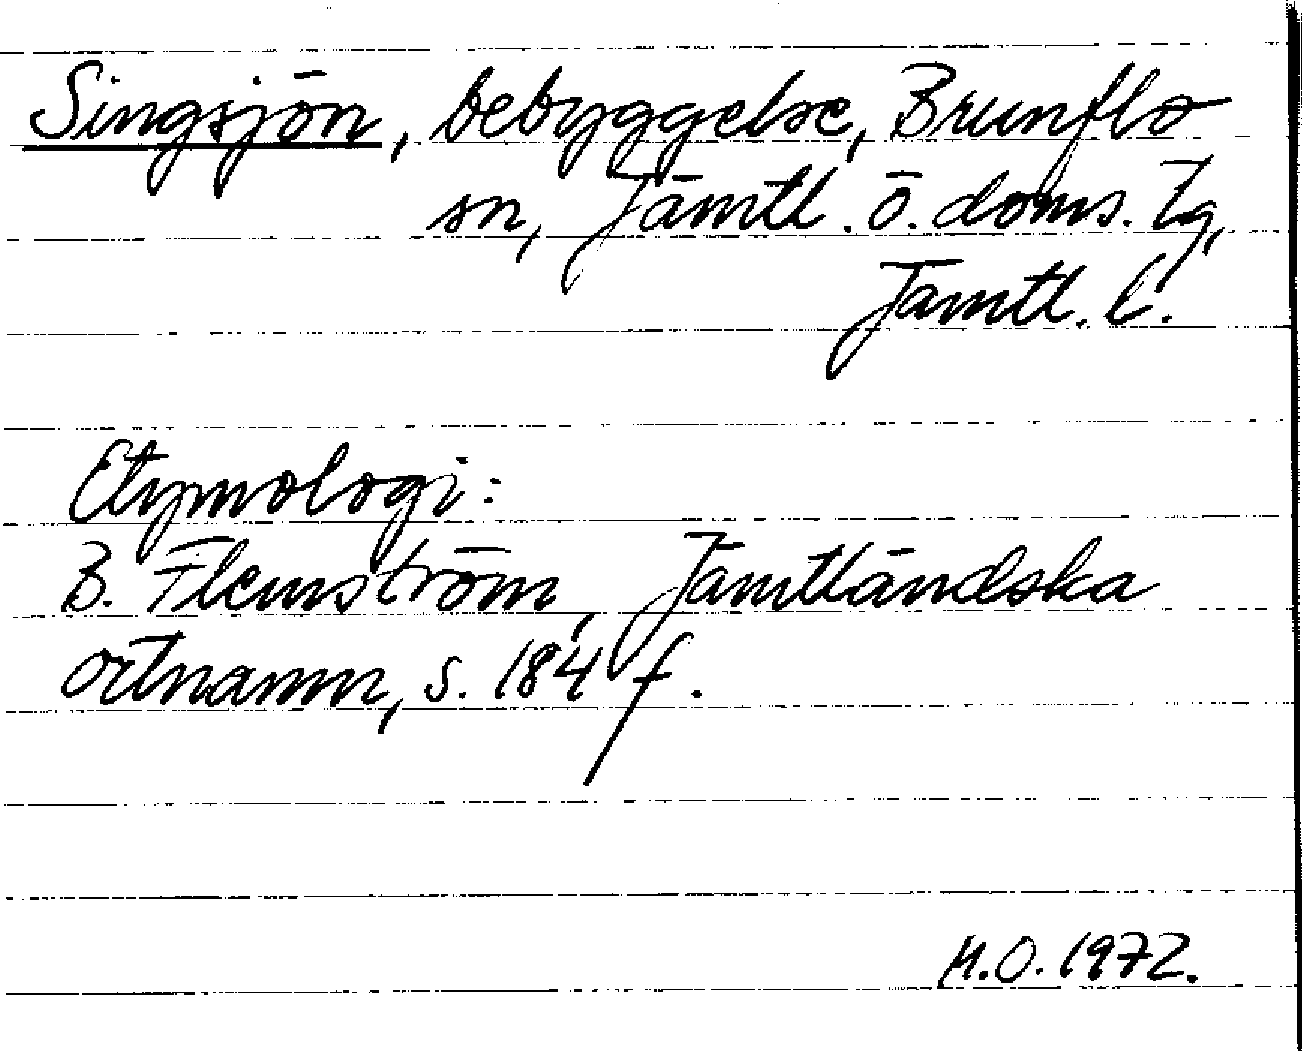 Singsjön, bebyggelse, Brunflo
sn, Jämtl. ö. doms. tg,
Jämtl. l.
Etymologi:
B. Flemström, Jämtländska
ortnamn, s. 184 f.
M.O. 1972.